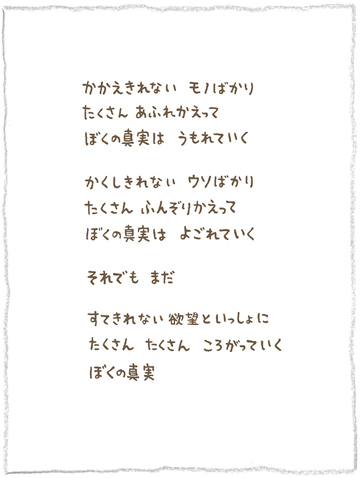 かかえきれない モノばかり
たくさん あふれかえって
ぼくの真実は うもれていく
かくしきれない ウソばかり
たくさん ふんぞりかえって
ぼくの真実は よごれていく
それでも まだ
すてきれない 欲望といっしょに
たくさん たくさん ころがっていく
ぼくの真実